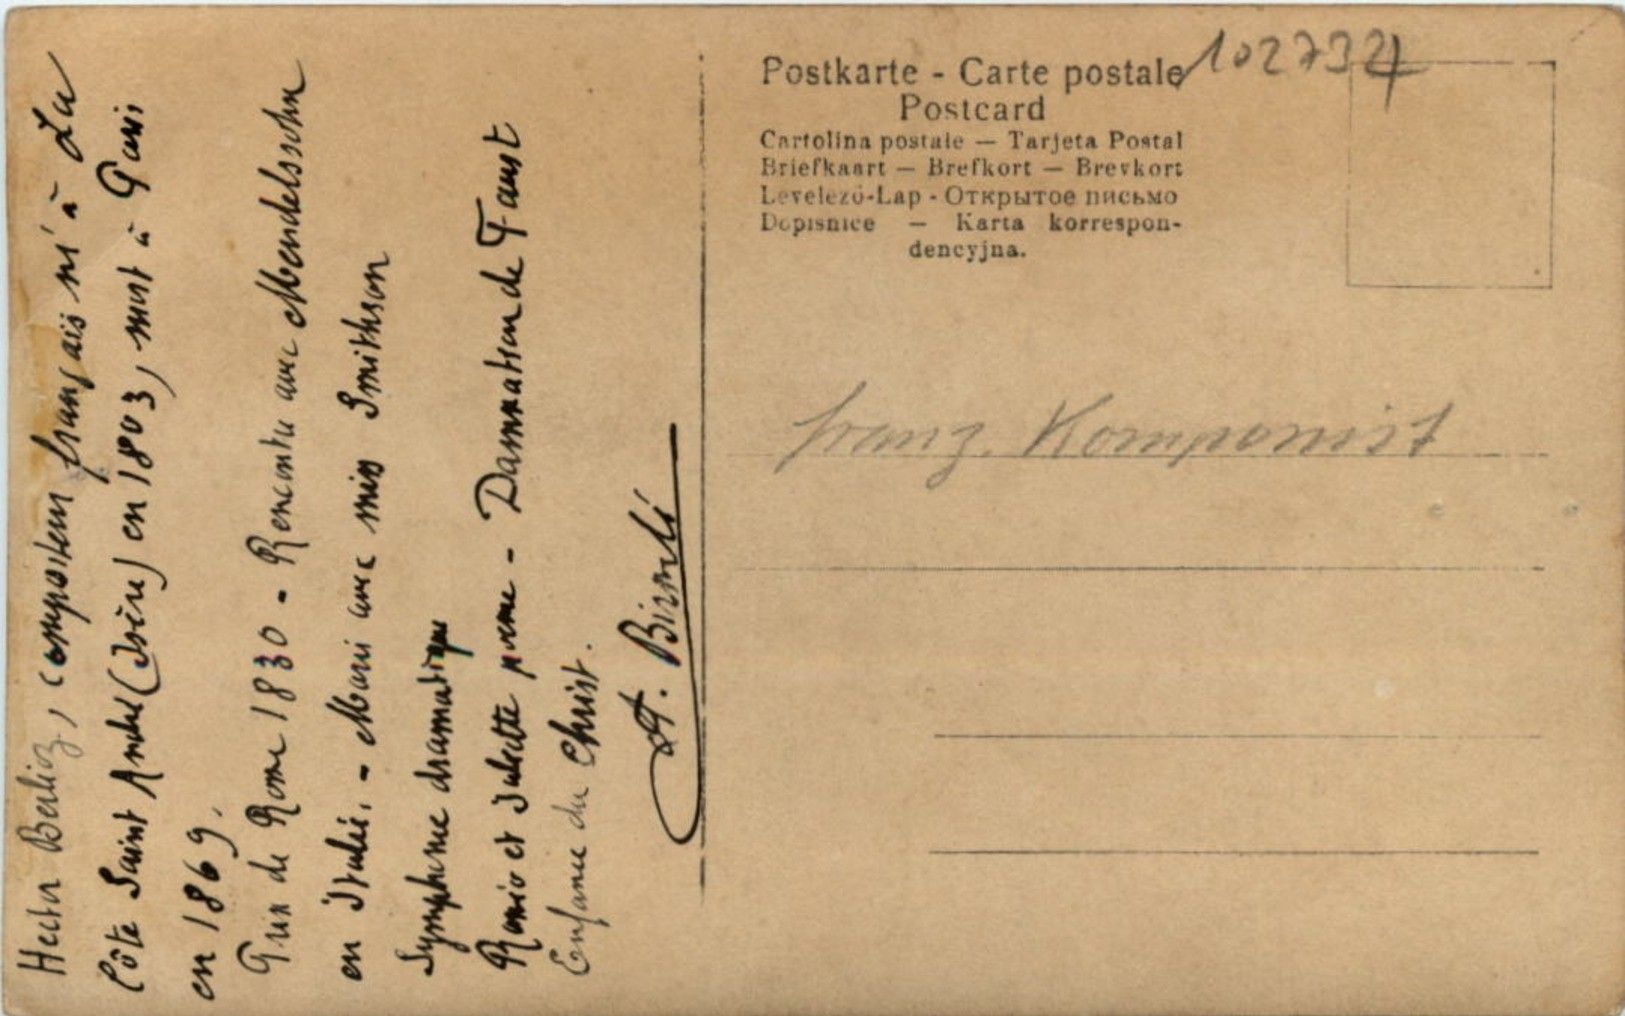 Hector Berlioz, compositeur français né à La
Côte Saint André (Isère) en 1803, mort à Paris
en 1869.
Prix de Rome 1830 - Rencontre avec Mendelssohn
en Italie. - Marié avec miss Smithson
Symphonie dramatique
Roméo et Juliette poeme - Damnation de Faust
Enfance du Christ.
Postkarte - Carte postale
Postcard
Cartolina postale — Tarjeta Postal
Briefkaart — Brefkort — Brevkort
Levelező-Lap - Открытое письмо
Dopisnice — Karta korrespon-
dencyjna.
franz. Komponist